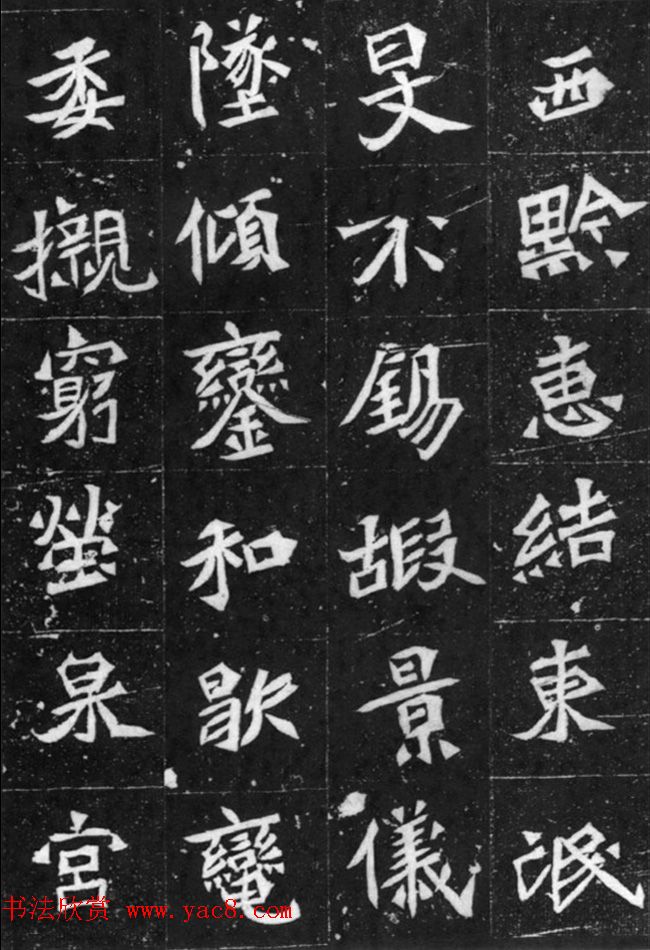 西黔惠結東氓
旻不錫嘏景儀
墜傾鑾和歇鸞
委櫬窮塋泉宮
书法欣赏 www.yac8.com